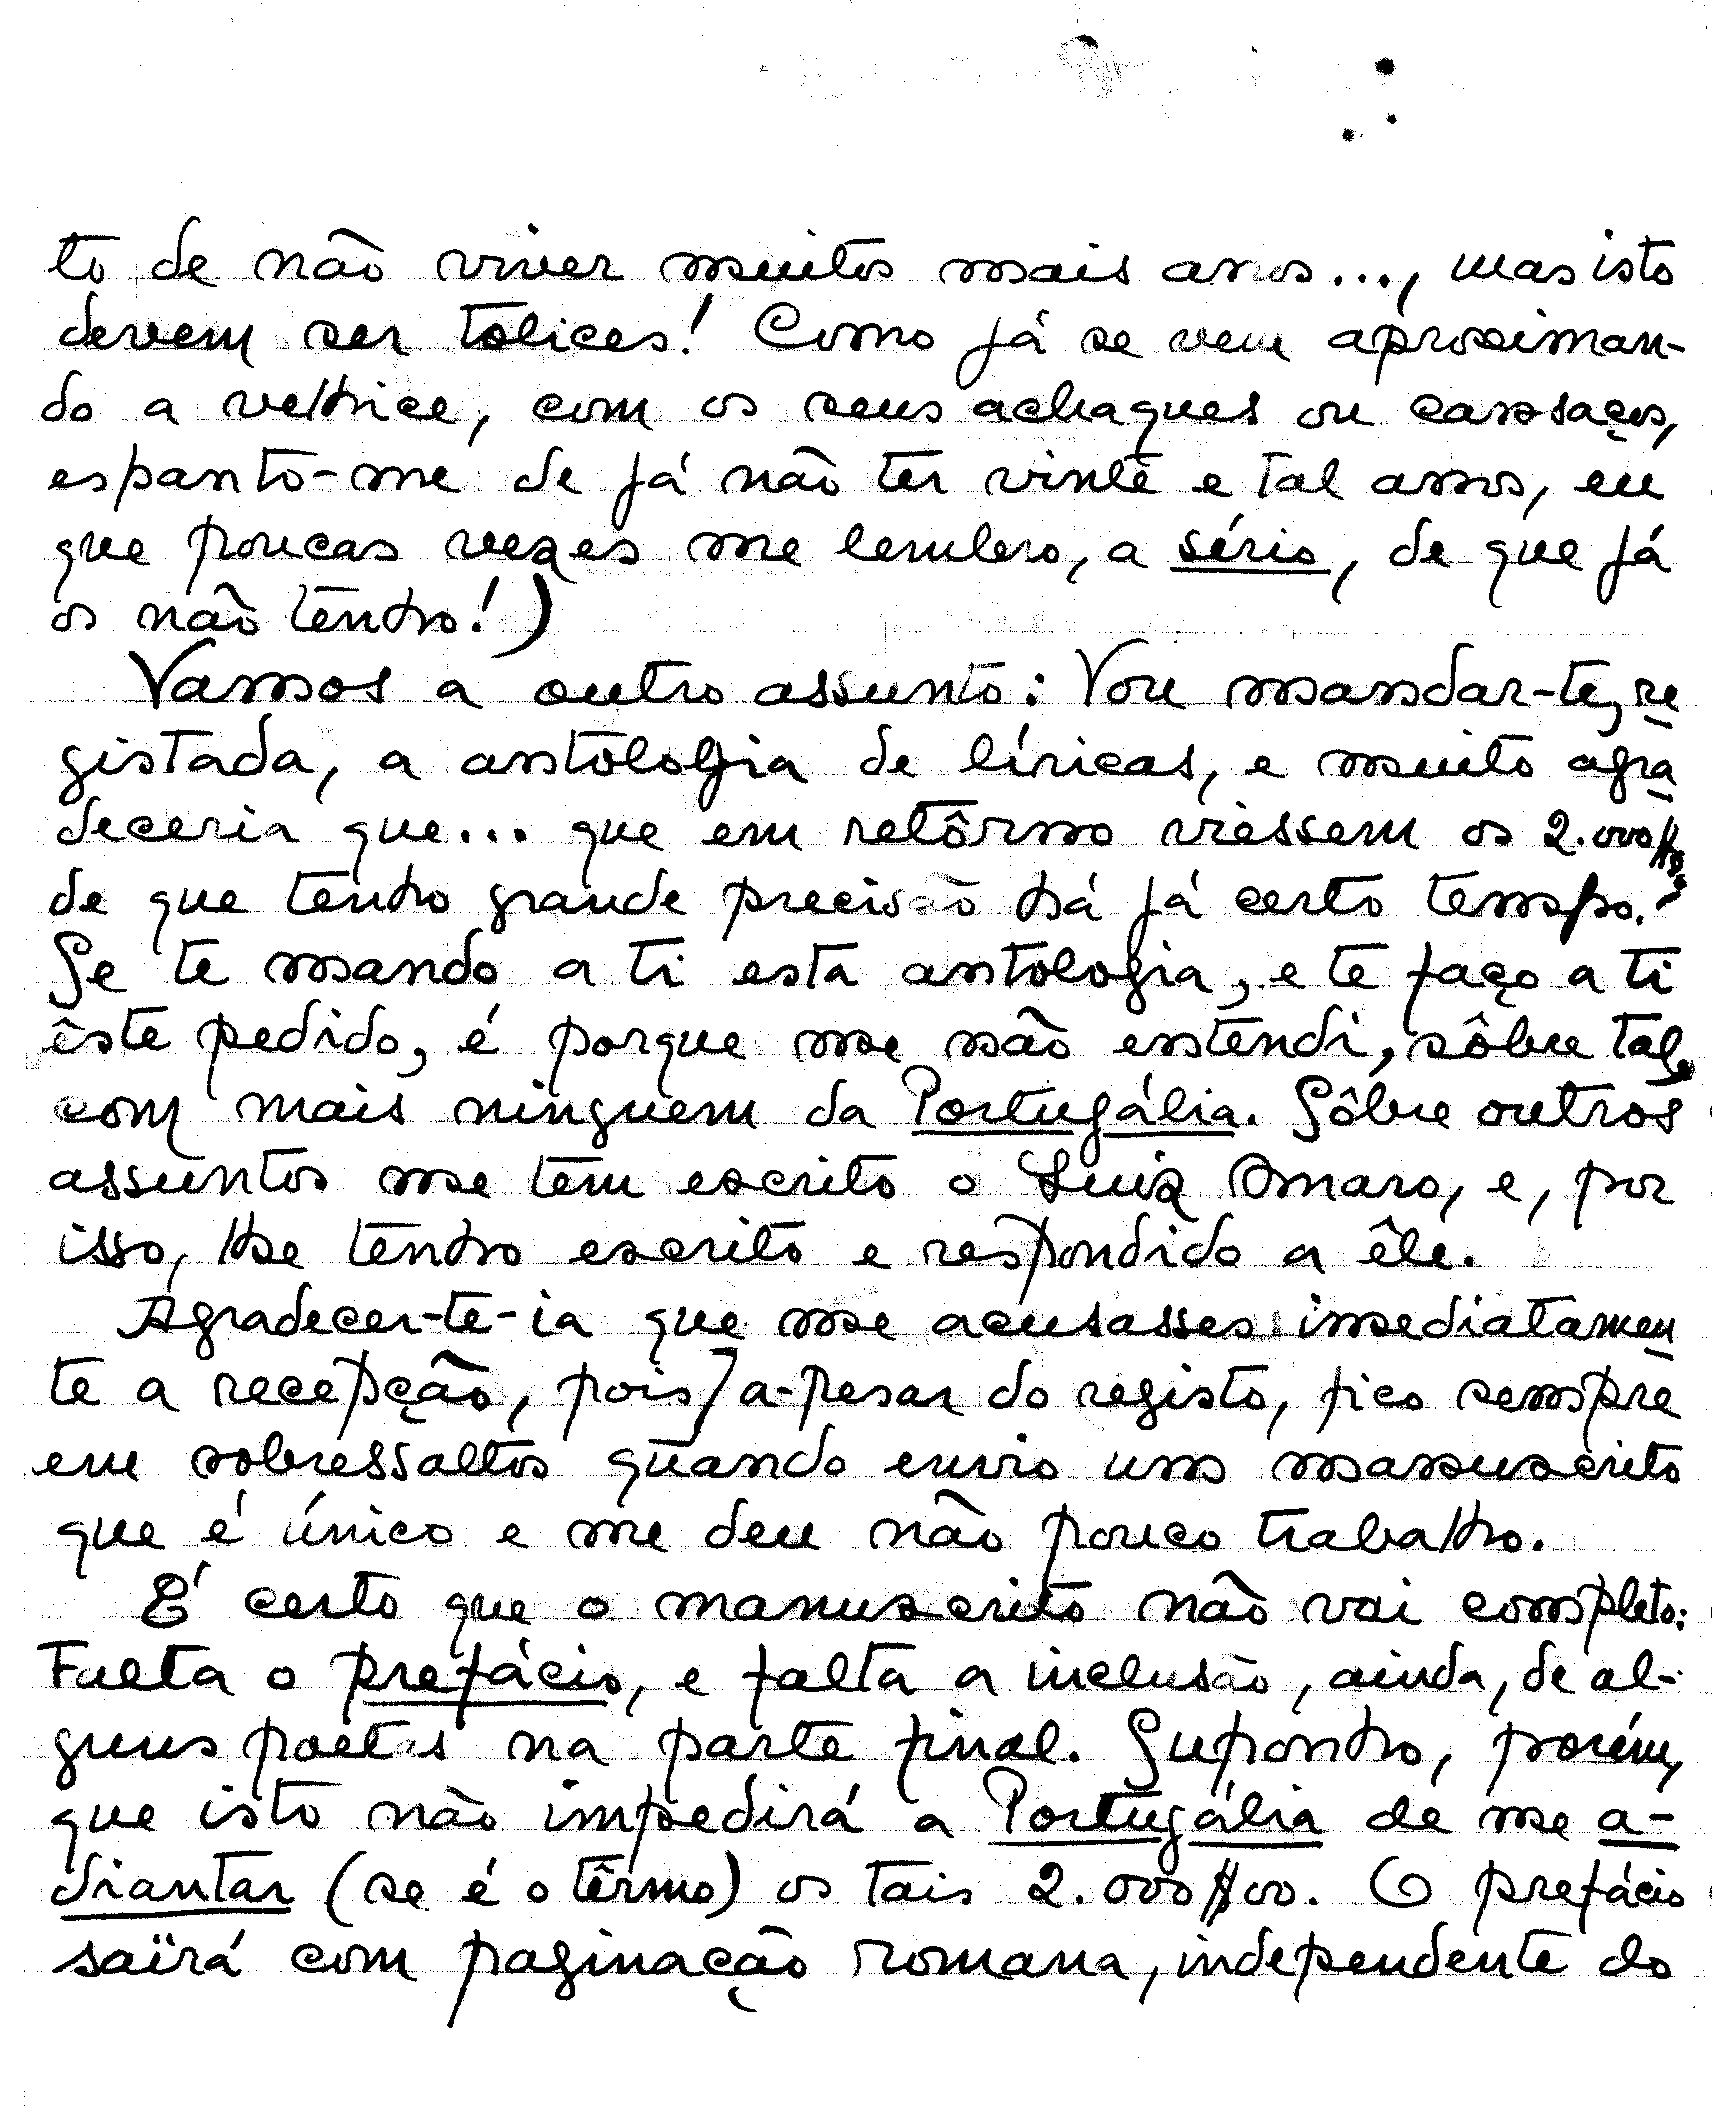 to de não viver muitos mais anos..., mas isto
devem ser tolices! Como já se vem aproximan-
do a velhice, com os seus achaques ou cansaços,
espanto-me de já não ter vinte e tal anos, eu
que poucas vezes me lembro, a sério, de que já
os não tenho!)
Vamos a outro assunto: Vou mandar-te, re
gistada, a antologia de líricas, e muito agra
deceria que... que em retôrno viessem os 2.000$00,
de que tenho grande precisão há já certo tempo.
Se te mando a ti esta antologia, e te faço a ti
êste pedido, é porque me não entendi, sôbre tal,
com mais ninguem da Portugália. Sôbre outros
assuntos me tem escrito o Luiz Amaro, e, por
isso, lhe tenho escrito e respondido a êle.
Agradecer-te-ia que me acusasses imediatamen
te a recepção, pois, a-pesar do registo, fico sempre
em sobressaltos quando envio um manuscrito
que é único e me deu não pouco trabalho.
É certo que o manuscrito não vai completo:
Falta o prefácio, e falta a inclusão, ainda, de al-
guns poetas na parte final. Suponho, porém,
que isto não impedirá a Portugália de me a-
diantar (se é o têrmo) os tais 2.000$00. O prefácio
saïrá com paginação romana, independente do